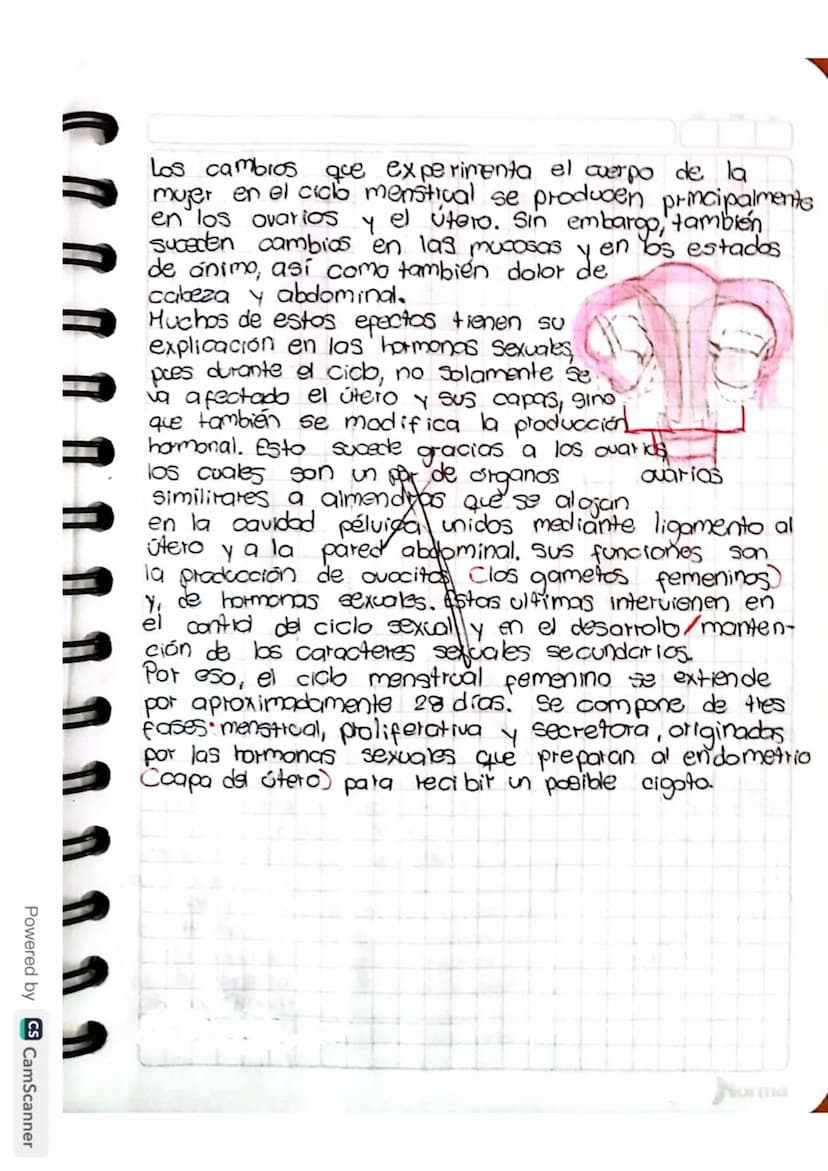 Los cambios que experimenta el cuerpo de la
mujer en el ciclo menstrual se producen principalmente
en los ovarios y el útero. Sin embargo, también
suceden cambios en las mucosas y en los estados
de ánimo, así como también dolor de
cabeza y abdominal.
Muchos de estos efectos tienen su
explicación en las hormonas sexuales,
pues durante el ciclo, no solamente se
va afectado el útero y sus capas, sino
que también se modifica la producción
hormonal. Esto sucede gracias a los ovarios
los cuales son un par de órganos
ovarios
similirares a almendras que se alojan
en la cavidad pélvica, unidos mediante ligamento al
útero y a la pared abdominal. Sus funciones son
la producción de ovocitos (los gametos femeninos)
y, de hormonas sexuales. Estas ultimas intervienen en
el control del ciclo sexual y en el desarrollo/manten-
ción de los caracteres sexuales secundarios.
Por eso, el ciclo menstrual femenino se extiende
por aproximadamente 28 días. Se compone de tres
fases: menstrual, proliferativa y secretora, originadas
por las hormonas sexuales que preparan al endometrio
(capa del útero) para recibir un posible cigoto.
Norma
Powered by CS CamScanner